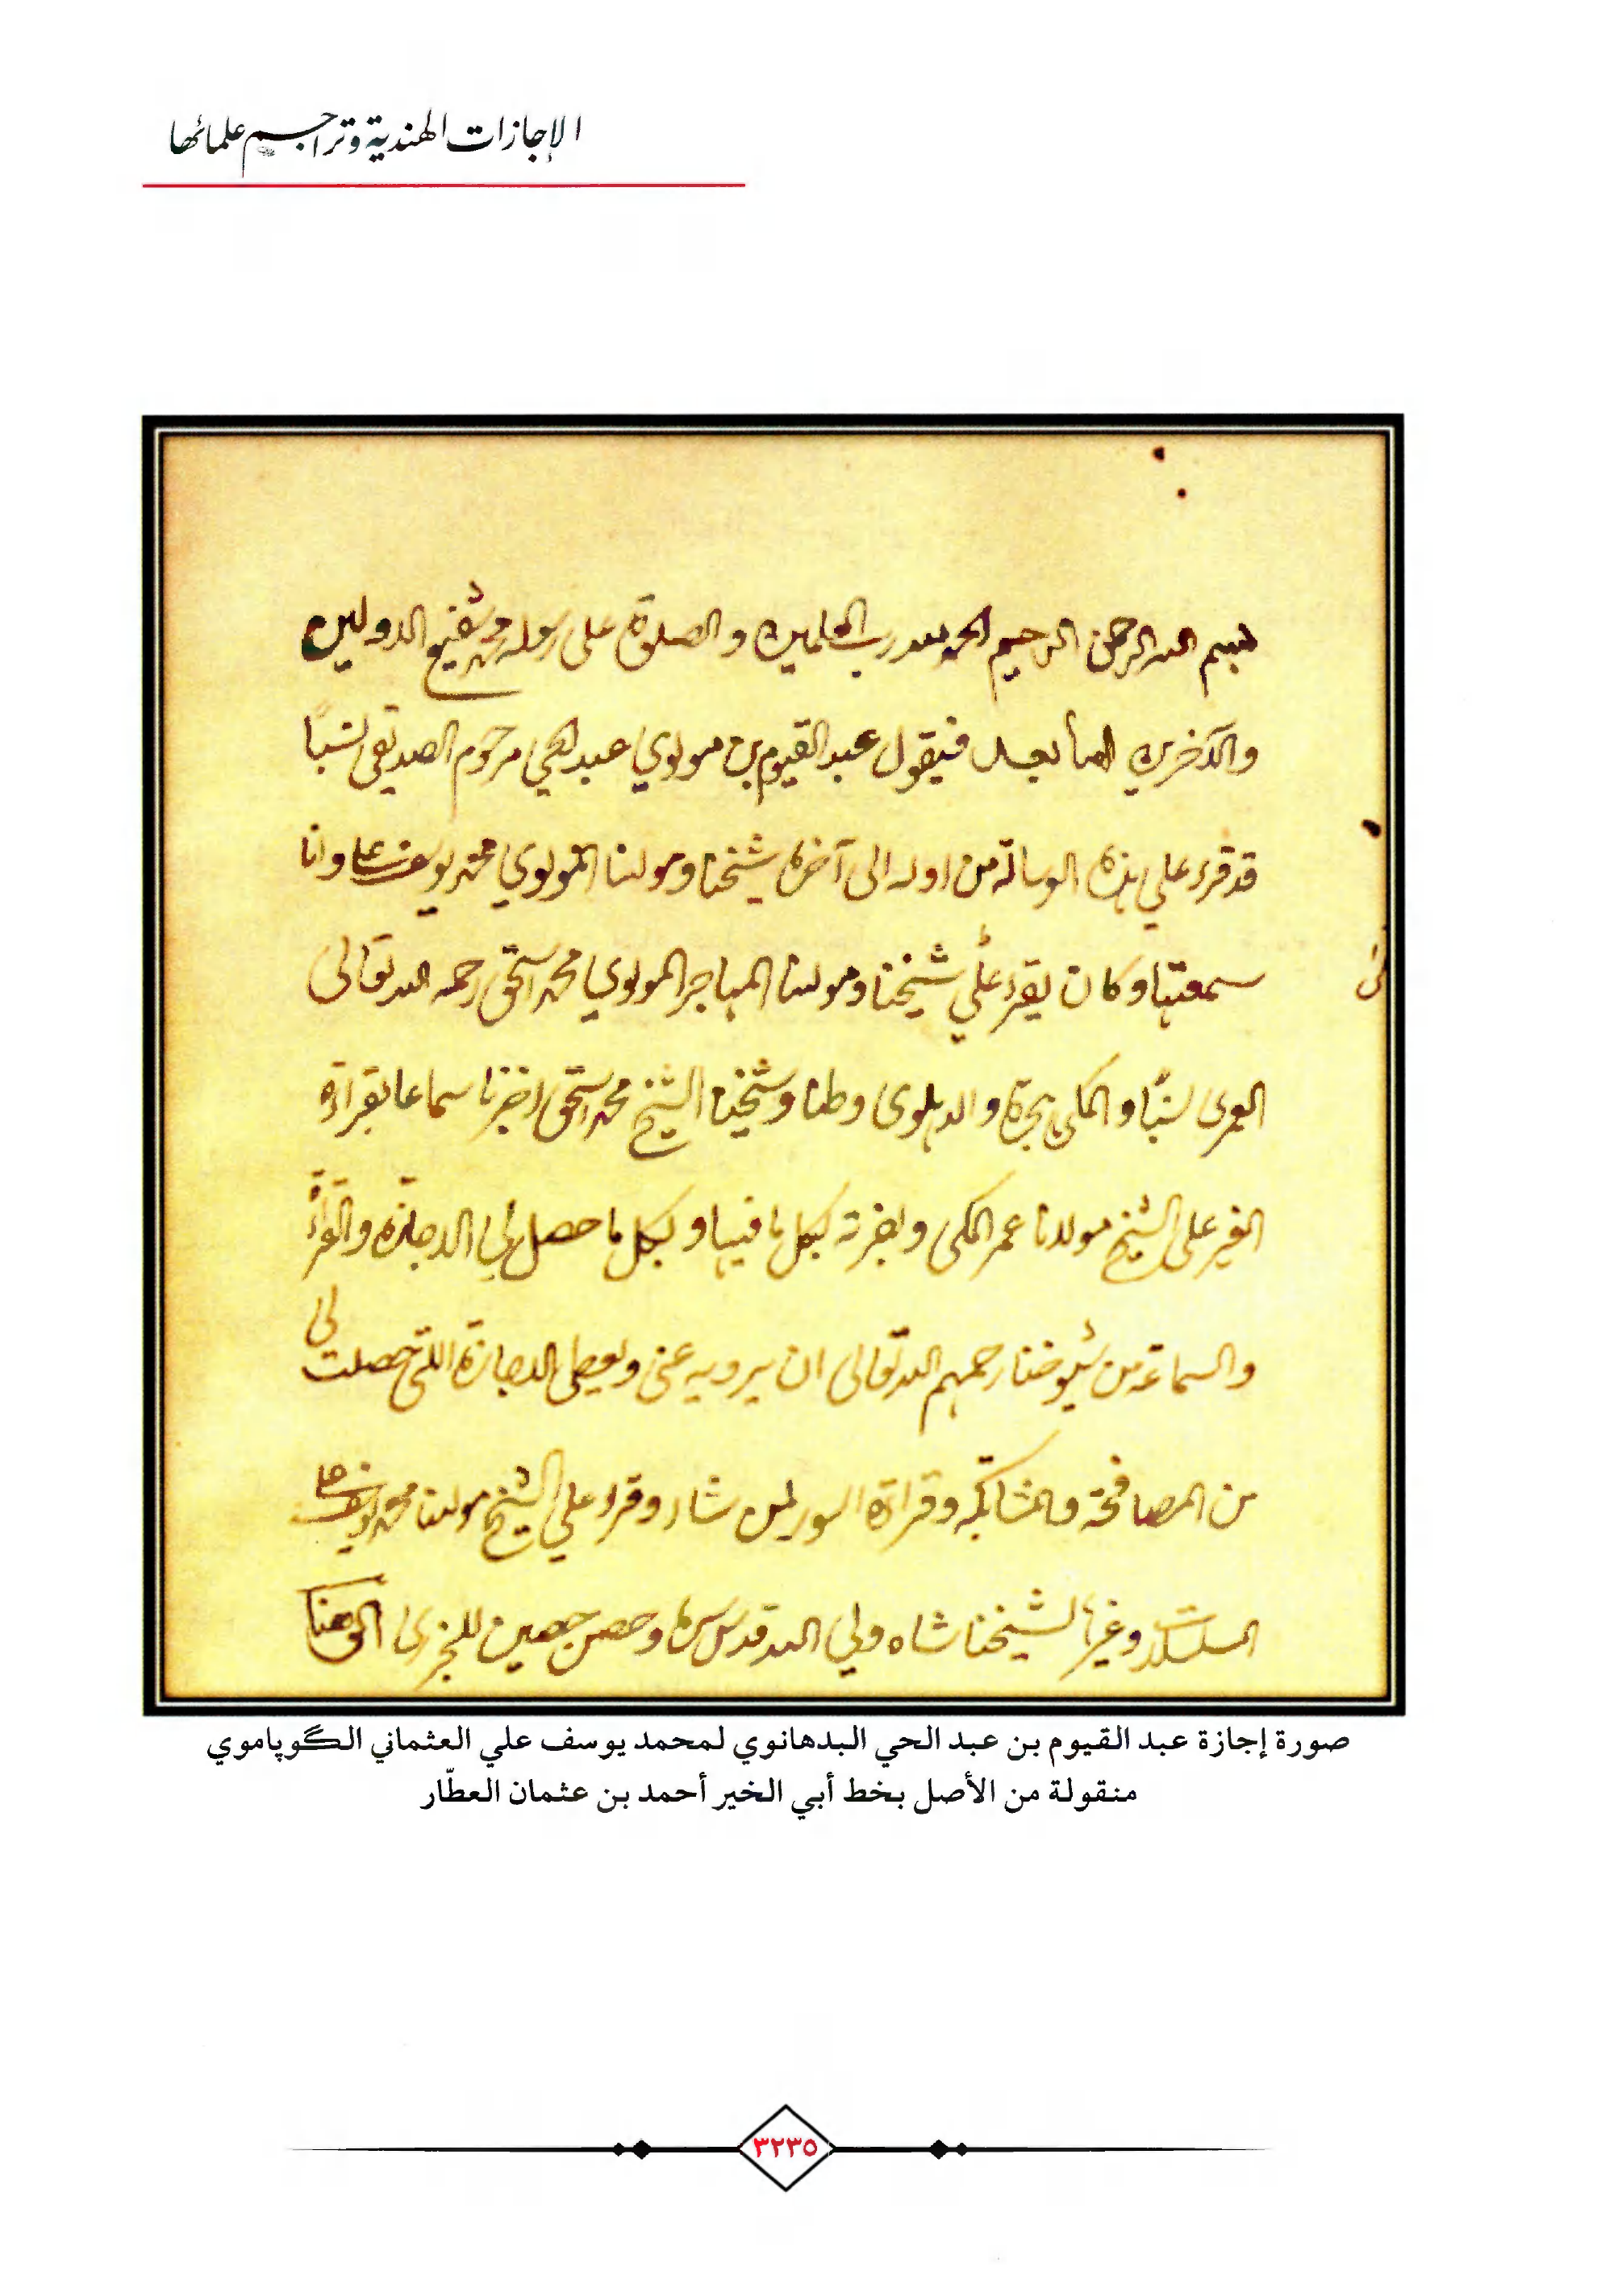 الإجازات الهندية وتراجم علمائها
بسم الله الرحمن الرحيم الحمد لله رب العلمين والصلوة على رسوله محمد شفيع الاولين
والآخرين اما بعد فيقول عبد القيوم بن مولوي عبد الحي مرحوم الصديقي نسبًا
قد قرء علي هذه الرسالة من اوله الى آخره شيخنا ومولنا المولوي محمد يوسف علي وانا
سمعتها وكان يقرء علي شيخنا ومولنا المهاجر المولوي محمد اسحق رحمه الله تعالى
العمري نسبًا والمكي هجرة والدهلوي وطنا وشيخنا الشيخ محمد اسحق سماعا بقراءة
الغير على الشيخ مولانا عمر المكي واجزته لكل ما فيها ولكل ما حصل لي الاجازة والقراءة
والسماعة من شيوخنا رحمهم الله تعالى ان يرويه عني ويعطي الاجازة اللتي حصلت لي
من المصافحة والمشابكة وقراءة السور لمن شاء وقرء علي الشيخ مولنا محمد يوسف علي
وغيرها لشيخنا شاه ولي الله قدس سره وحصن حصين للجزري
صورة إجازة عبد القيوم بن عبد الحي البدهانوي لمحمد يوسف علي العثماني الگوپاموي
منقولة من الأصل بخط أبي الخير أحمد بن عثمان العطّار
٣٢٣٥